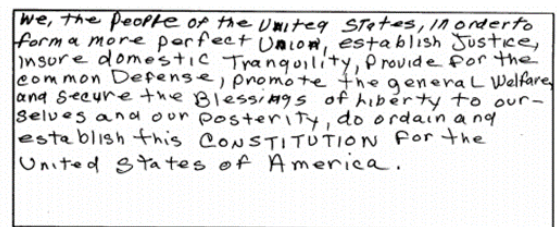 We, the People of the United States, in order to
form a more perfect Union, establish Justice,
insure domestic Tranquility, provide for the
common Defense, promote the general Welfare,
and secure the Blessings of Liberty to our-
selves and our posterity, do ordain and
establish this CONSTITUTION for the
United States of America.